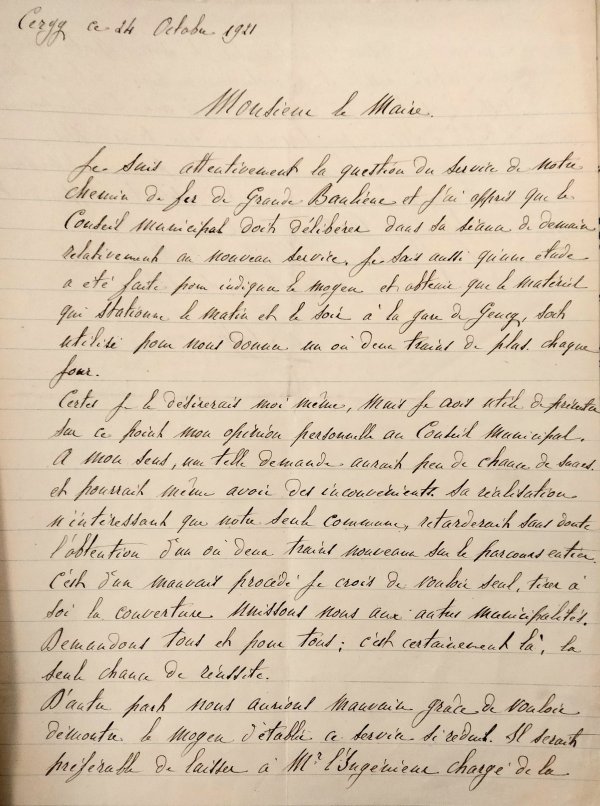 Cergy ce 24 Octobre 1921
Monsieur le Maire.
Je suis attentivement la question du service de notre
chemin de fer de Grande Banlieue et j'ai appris que le
Conseil Municipal doit délibérer dans sa séance de demain
relativement au nouveau service. Je sais aussi qu'une étude
a été faite pour indiquer le moyen et obtenir que le matériel
qui stationne le matin et le soir à la gare de Gency, soit
utilisé pour nous donner un où deux trains de plus chaque
jour.
Certes je le désirerais moi même, mais je crois utile de présenter
sur ce point mon opinion personnelle au Conseil Municipal.
A mon sens, une telle demande aurait peu de chance de succès
et pourrait même avoir des inconvénients. Sa réalisation
n'intéressant que notre seule commune, retarderait sans doute
l'obtention d'un où deux trains nouveaux sur le parcours entier.
C'est d'un mauvais procédé je crois de vouloir seul, tirer à
soi la couverture. Unissons nous aux autres municipalités.
Demandons tous et pour tous; c'est certainement là, la
seule chance de réussite.
D'autre part nous aurions mauvaise grâce de vouloir
démontrer le moyen d'établir ce service si réduit. Il serait
préférable de laisser à Mr l'Ingénieur chargé de la